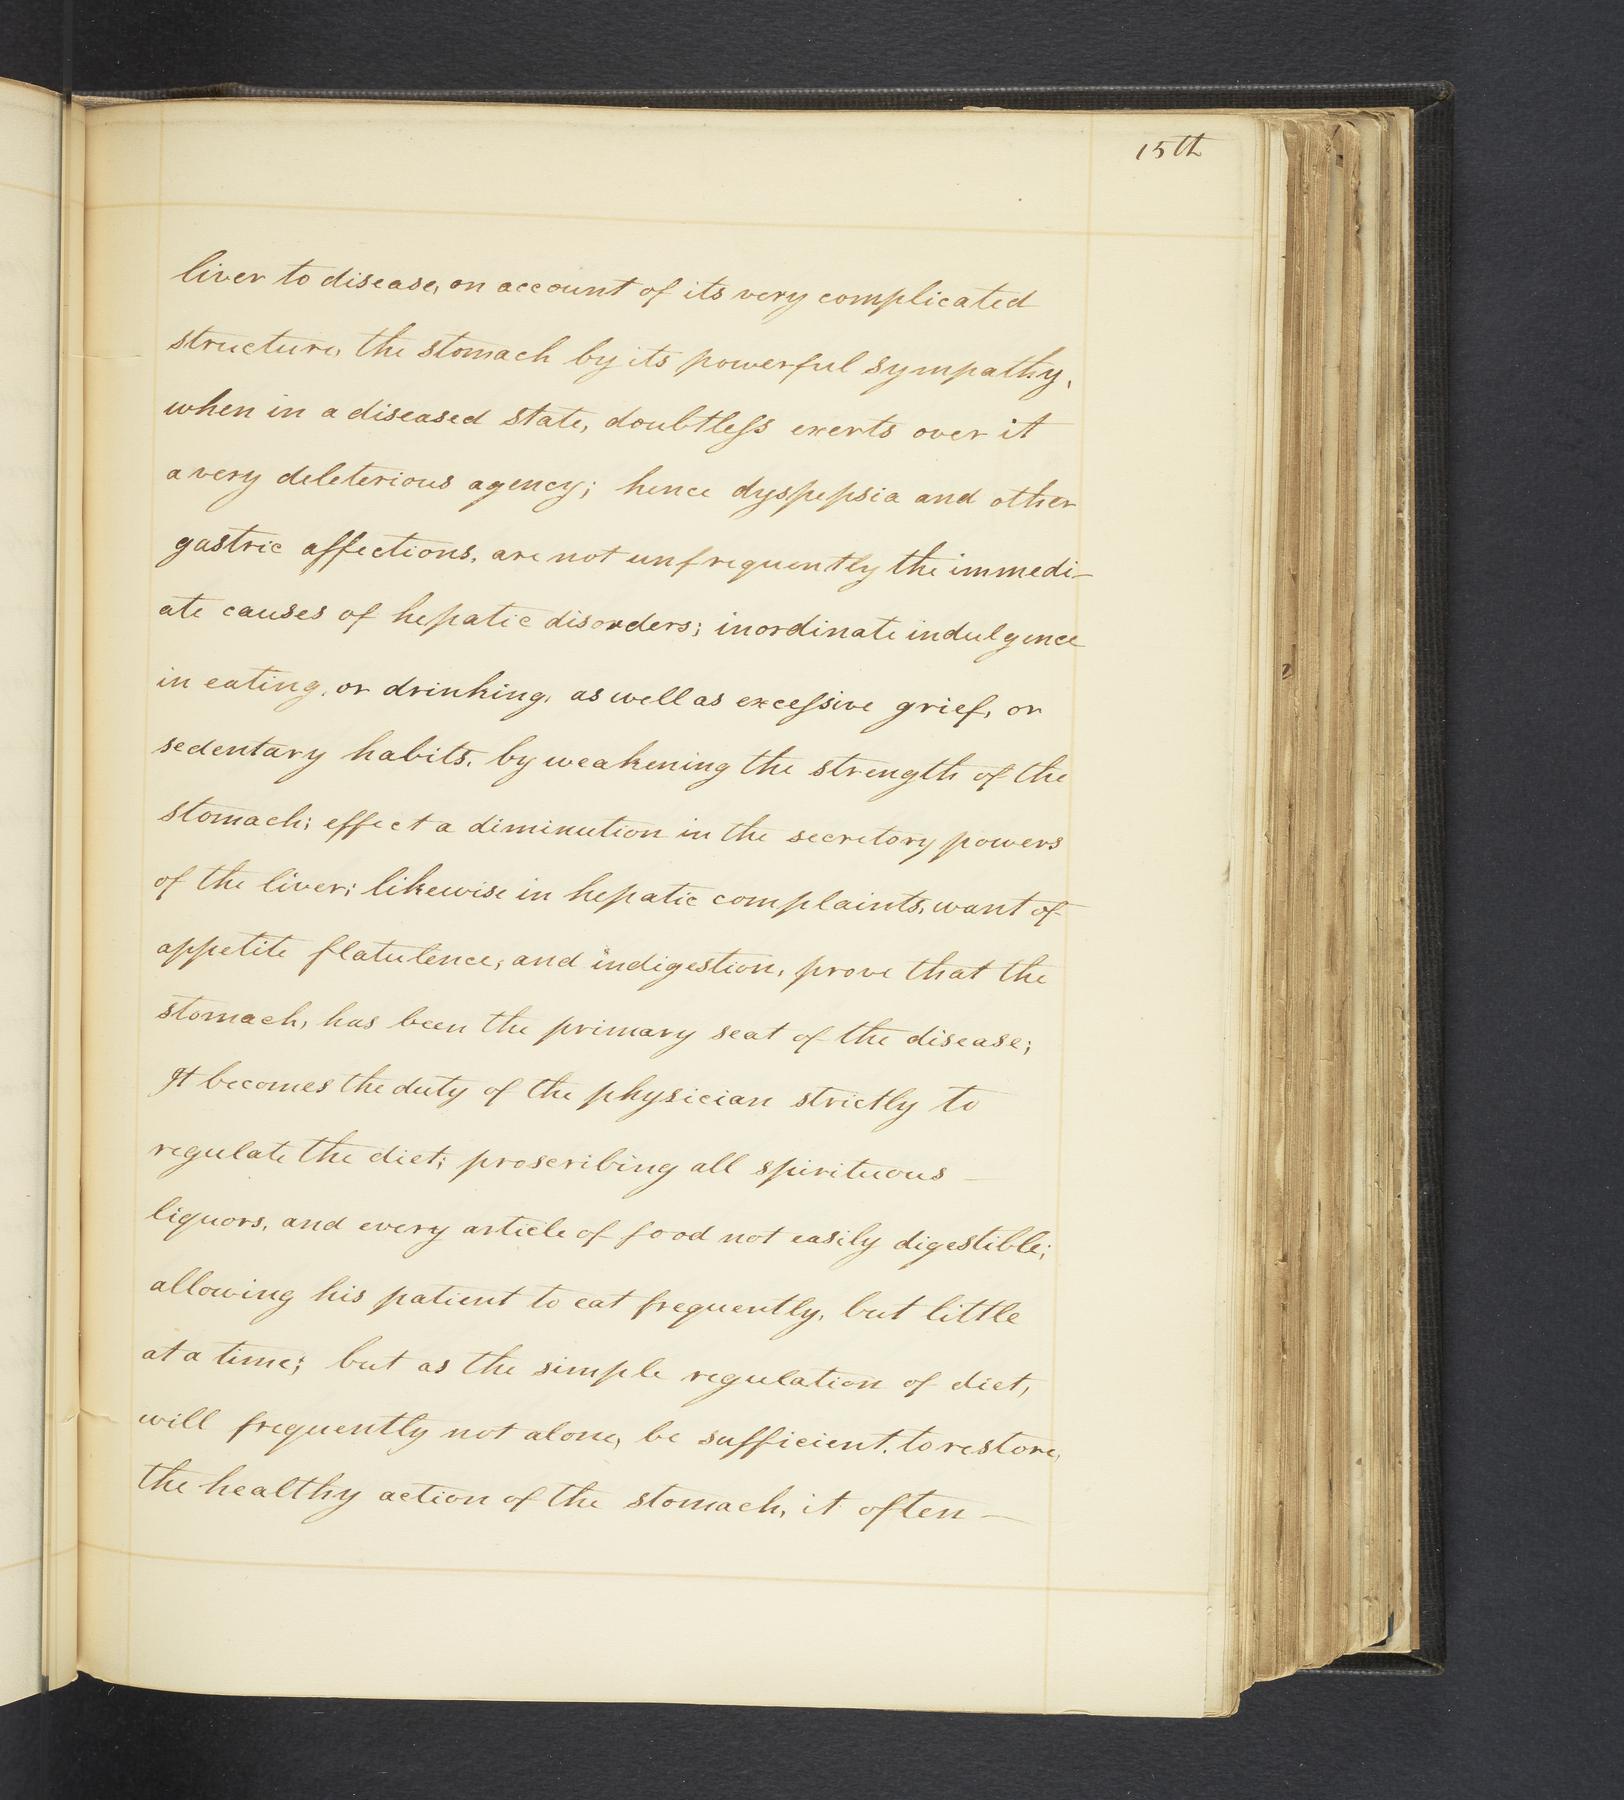 15th
liver to disease, on account of its very complicated
structure, the stomach by its powerful sympathy,
when in a diseased state, doubtless exerts over it
a very deleterious agency; hence dyspepsia and other
gastric affections, are not unfrequently the immedi-
ate causes of hepatic disorders; inordinate indulgence
in eating, or drinking, as well as excessive grief, or
sedentary habits, by weakening the strength of the
stomach; effect a diminution in the secretory powers
of the liver; likewise in hepatic complaints, want of
appetite flatulence, and indigestion, prove that the
stomach, has been the primary seat of the disease;
It becomes the duty of the physician strictly to
regulate the diet; proscribing all spirituous —
liquors, and every article of food not easily digestible;
allowing his patient to eat frequently, but little
at a time; but as the simple regulation of diet,
will frequently not alone, be sufficient, to restore,
the healthy action of the stomach, it often —